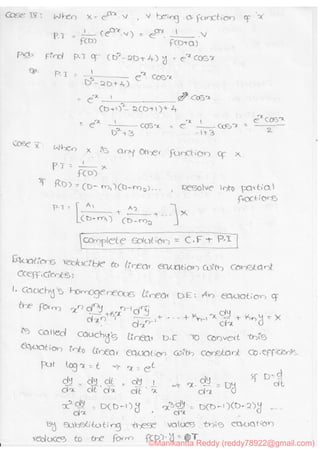 Case IV: When X = e^{ax} V, V being a function of x
P.I = 1/f(D) (e^{ax} V) = e^{ax} 1/f(D+a) V
Find P.I of (D²-2D+4) y = e^x cosx
P.I = 1/(D²-2D+4) e^x cosx
= e^x 1/((D+1)²-2(D+1)+4) cosx
= e^x 1/(D²+3) cosx = e^x 1/(-1+3) cosx = e^x cosx/2
Case V: When X is any other function of x.
P.I = 1/f(D) X
If f(D) = (D-m₁)(D-m₂)..., resolve into partial
fractions
P.I = [A₁/(D-m₁) + A₂/(D-m₂) ...] X
Complete Solution = C.F + P.I
Equations reducible to linear equation with constant
coefficients:
1. Cauchy's homogeneous Linear DE: An equation of
the form xⁿ dⁿy/dxⁿ + k₁xⁿ⁻¹ dⁿ⁻¹y/dxⁿ⁻¹ + ... + kₙ₋₁ x dy/dx + kₙ y = X
is called cauchy's linear D.E To convert this
equation into linear equation with constant co-efficients
put log x = t ⇒ x = e^t
dy/dx = dy/dt · dt/dx = dy/dt · 1/x ⇒ x · dy/dx = Dy if D = d/dt
x² d²y/dx² = D(D-1)y, x³ d³y/dx³ = D(D-1)(D-2)y ...
By substituting these values this equation
reduces to the form f(D)·y = T
©Manikanta Reddy (reddy78922@gmail.com)